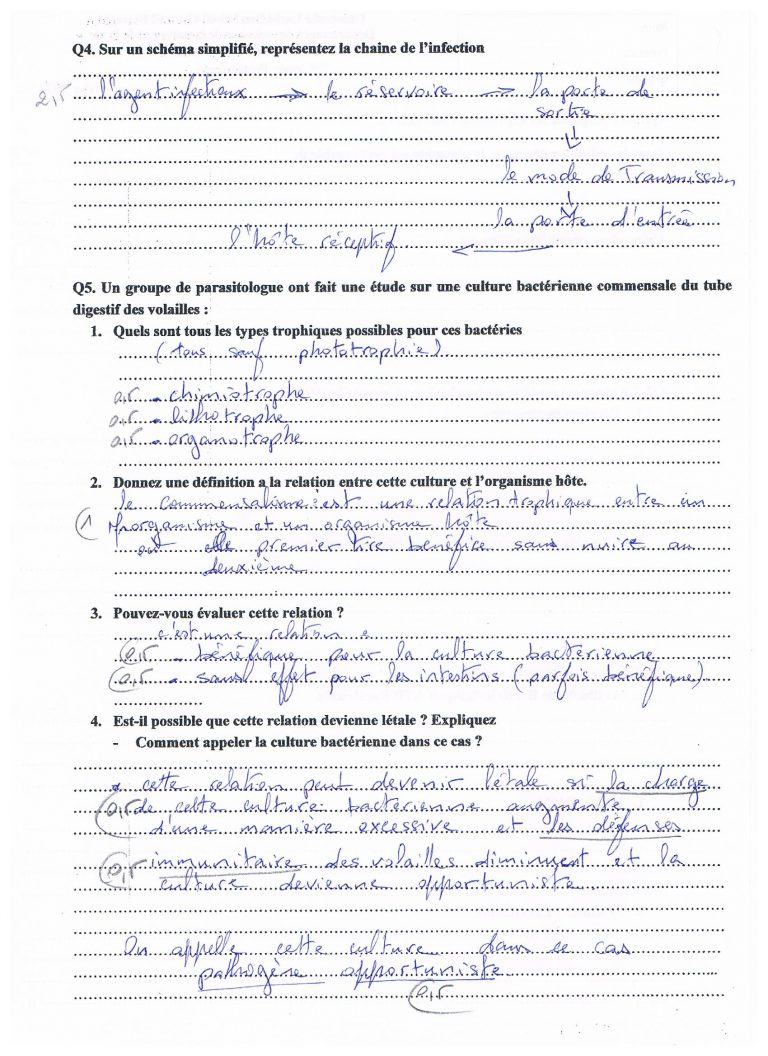 Q4. Sur un schéma simplifié, représentez la chaine de l'infection
2,5 l'agent infectieux → le réservoire → la porte de
sortie
↓
le mode de Transmission
↓
la porte d'entrée
l'hôte réceptif ←
Q5. Un groupe de parasitologue ont fait une étude sur une culture bactérienne commensale du tube
digestif des volailles :
1. Quels sont tous les types trophiques possibles pour ces bactéries
(tous sauf phototrophie)
0,5 - chimiotrophe
0,5 - lithotrophe
0,5 - organotrophe
2. Donnez une définition a la relation entre cette culture et l'organisme hôte.
le commensalisme : est une relation trophique entre un
1 organisme et un organisme hôte
où le premier tire bénéfice sans nuire au
deuxième
3. Pouvez-vous évaluer cette relation ?
c'est une relation :
0,5 - bénéfique pour la culture bactérienne
0,5 - sans effet pour les intestins (parfois bénéfique)
4. Est-il possible que cette relation devienne létale ? Expliquez
- Comment appeler la culture bactérienne dans ce cas ?
* cette relation peut devenir létale si la charge
0,5 de cette culture bactérienne augmente
d'une manière excessive et les défenses
0,5 immunitaire des volailles diminuent et la
culture devienne opportuniste.
On appelle cette culture dans ce cas
pathogène opportuniste
0,5